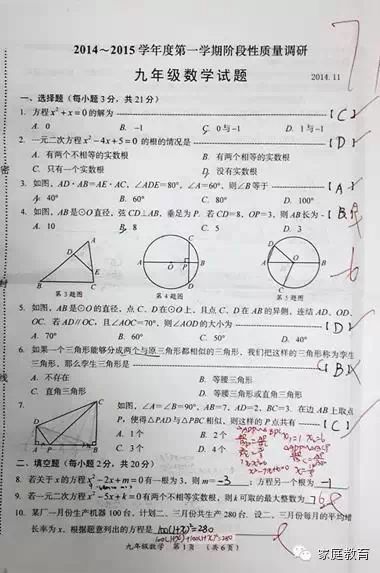 2014～2015学年度第一学期阶段性质量调研
九年级数学试题
2014.11
一、选择题（每小题3分，共21分）
1. 方程x²+x=0的解为 【C】
A. 0 B. -1 C. 0与-1 D. 1与-1
2. 一元二次方程x²-4x+5=0的根的情况是 【D】
A. 有两个不相等的实数根 B. 有两个相等的实数根
C. 只有一个实数根 D. 没有实数根
3. 如图，AD·AB=AE·AC，∠ADE=80°，∠A=60°，则∠B等于 【A】
A. 40° B. 60° C. 80° D. 100°
4. 如图，AB是⊙O直径，弦CD⊥AB，垂足为P. 若CD=8，OP=3，则AB长为【B】
A. 10 B. 8 C. 5 D. 3
第3题图 第4题图 第5题图
5. 如图，AB是⊙O的直径，点C、D在⊙O上，且点C、D在AB的异侧，连结AD、OD、
OC. 若AD∥OC，且∠AOC=70°，则∠AOD的大小为 【D】
A. 70° B. 60° C. 50° D. 40°
6. 如果一个三角形能够分成两个与原三角形都相似的三角形，我们把这样的三角形称为孪生
三角形，那么孪生三角形是 【B】
A. 不存在 B. 等腰三角形
C. 直角三角形 D. 等腰三角形或直角三角形
7. 如图，∠A=∠B=90°，AB=7，AD=2，BC=3. 在边AB上取点
P，使得△PAD与△PBC相似，则这样的P点共有 【C】
A. 1个 B. 2个
C. 3个 D. 4个
二、填空题（每小题2分，共20分）
8. 若关于x的方程x²-2x+m=0有一根为3，则m=-3；方程另一个根为-1
9. 若一元二次方程x²-5x+k=0有两个不相等实数根，则k可取的最大整数为 6
10. 某厂一月份生产机器100台，计划二、三月份共生产280台. 设二、三月份每月的平均增
长率为x，根据题意列出的方程是100(1+x)²=280
100(1+x)+100(1+x)²=280
九年级数学 第1页 （共6页）
密
封
线
家庭教育